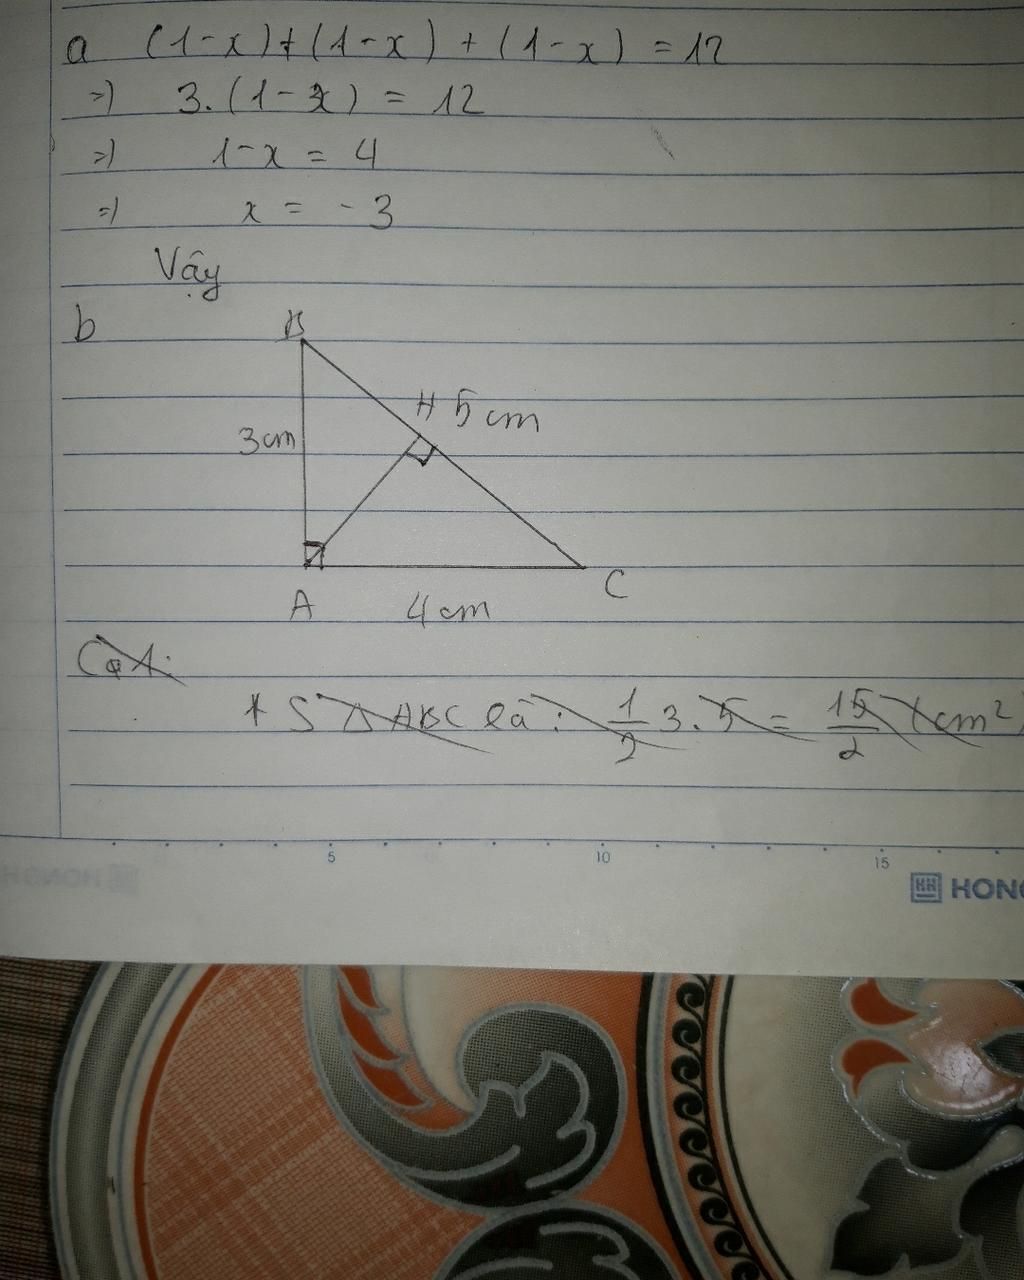 a (1-x)+(1-x)+(1-x)=12
=) 3.(1-x)=12
=) 1-x=4
=) x=-3
Vậy
b
B
H 5cm
3cm
A 4cm C
* S ΔABC là: 1/2 3.5 = 15/2 (cm²)
5 10 15
HONG